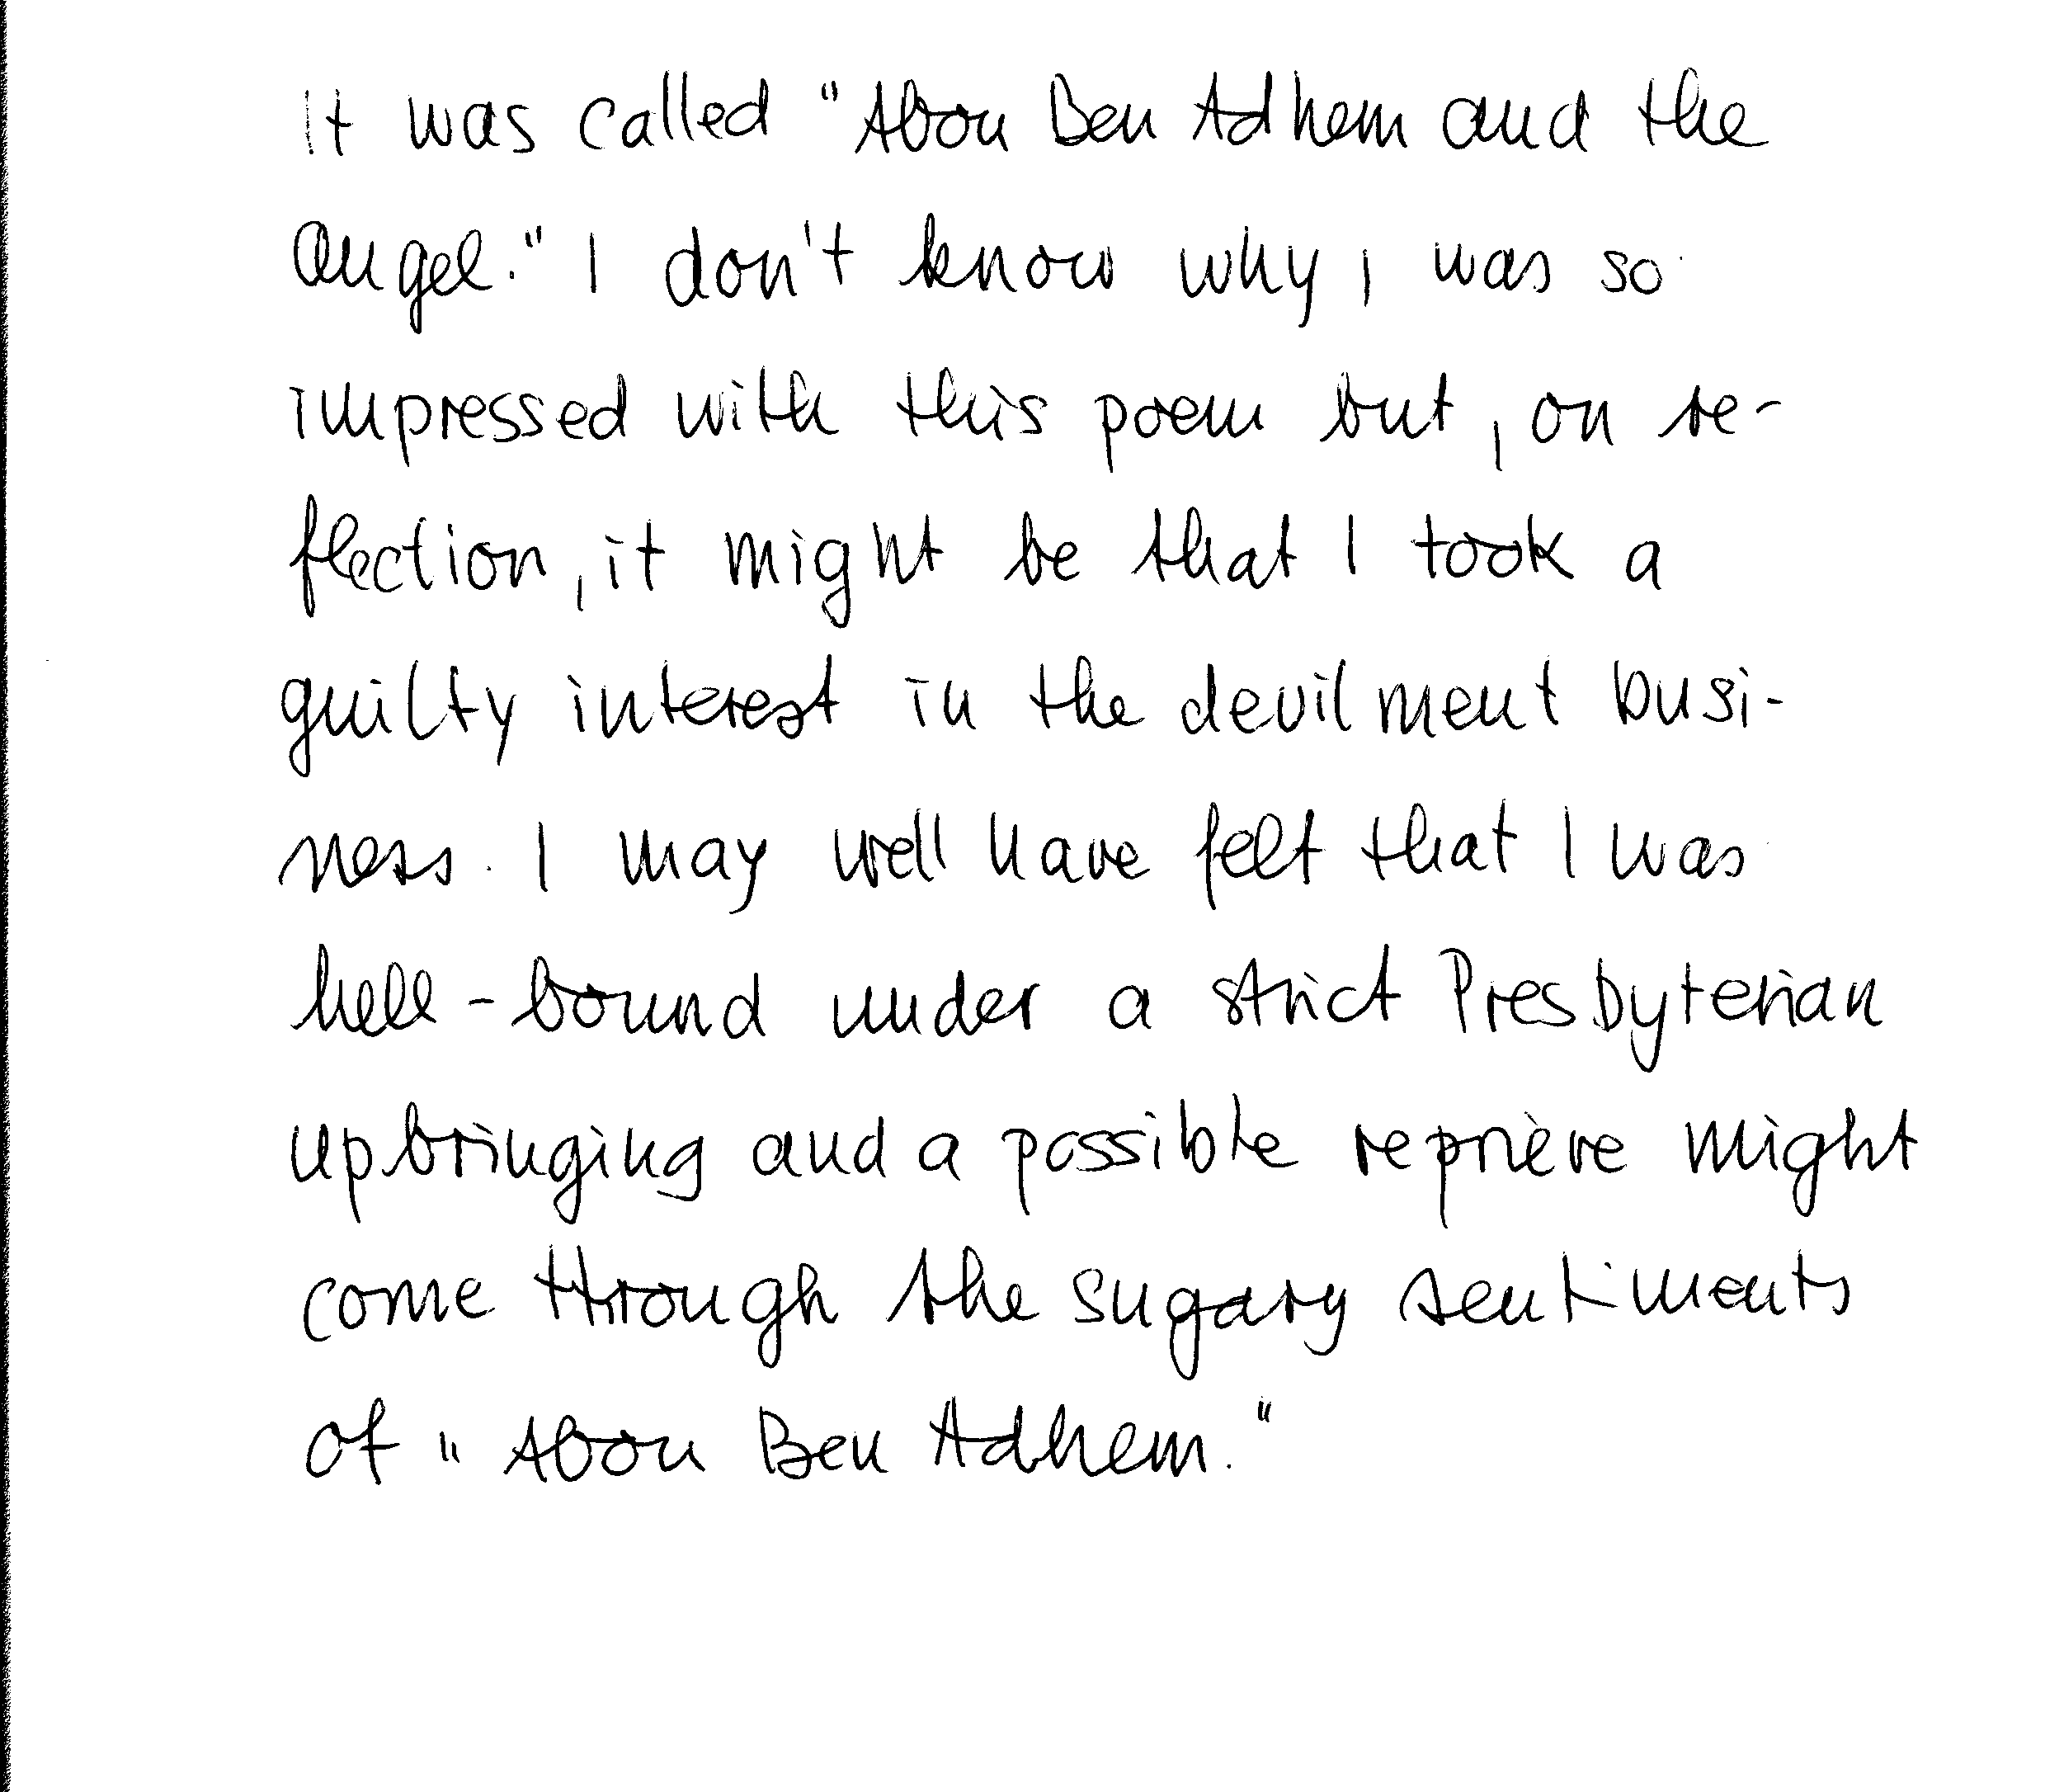 It was called "Abou Ben Adhem and the
angel." I don't know why I was so
impressed with this poem but, on re-
flection, it might be that I took a
guilty interest in the devilment busi-
ness. I may well have felt that I was
hell-bound under a strict Presbyterian
upbringing and a possible reprieve might
come through the sugary sentiments
of "Abou Ben Adhem."